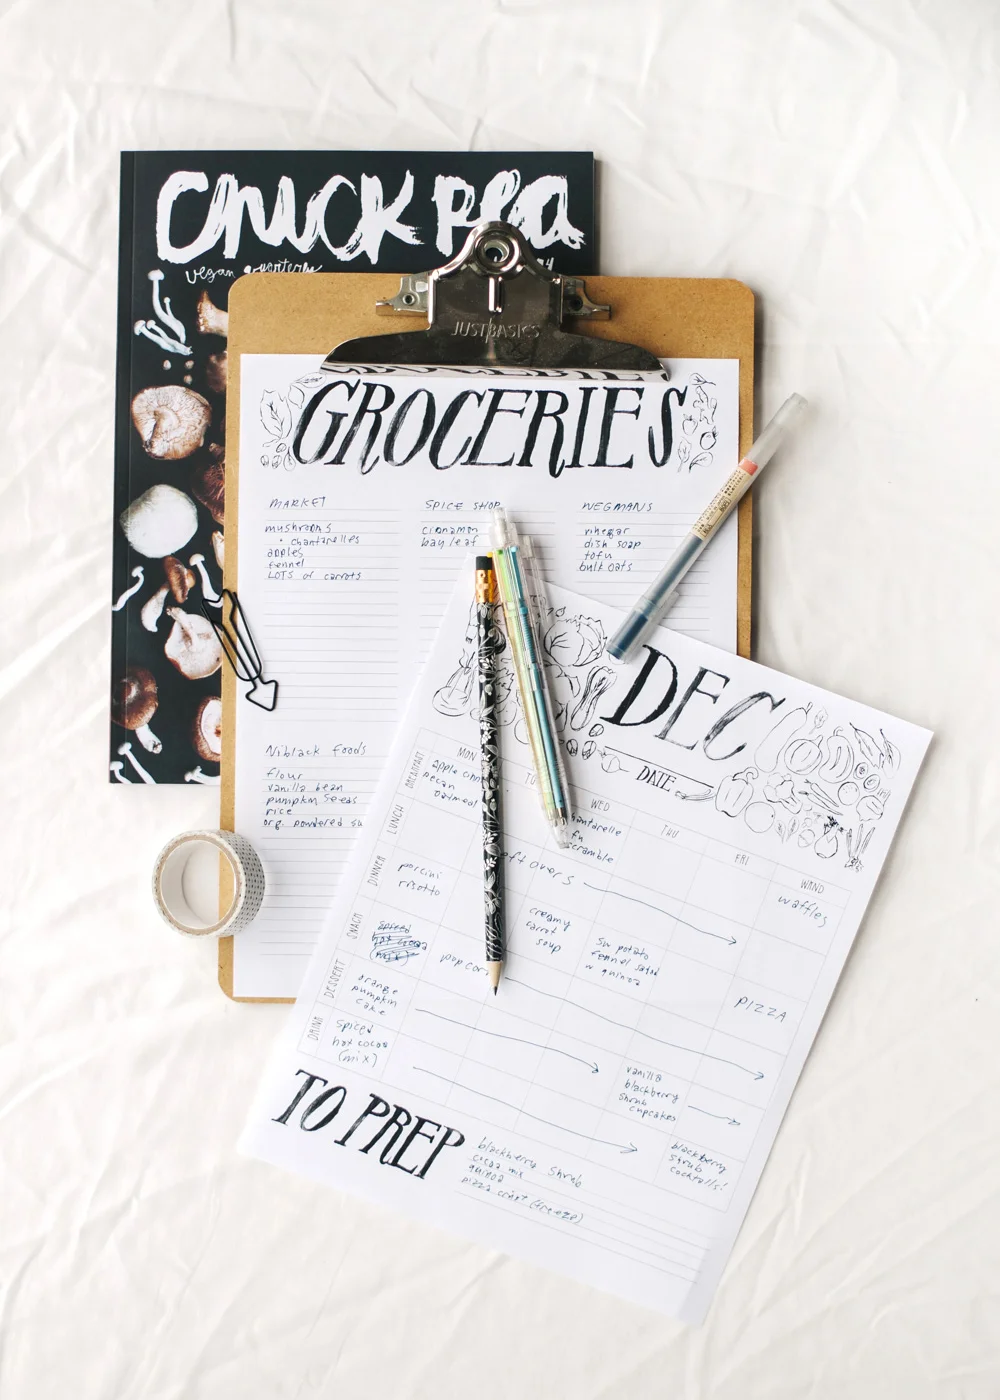 Chickpea
vegan quarterly
JUSTBASICS
GROCERIES
MARKET
mushrooms
• chantarelles
apples
fennel
LOTS of carrots
SPICE SHOP
cinnamon
bay leaf
WEGMANS
vinegar
dish soap
tofu
bulk oats
Niblack Foods
flour
vanilla bean
pumpkin seeds
rice
org. powdered su
DEC
DATE
MON
TU
WED
THU
FRI
WKND
BREAKFAST
apple cinn
pecan
oatmeal
hantarelle
fu
scramble
waffles
LUNCH
eftovers
DINNER
porcini
risotto
creamy
carrot
soup
sw potato
fennel salad
w quinoa
PIZZA
SNACK
popcorn
DESSERT
orange
pumpkin
cake
vanilla
blackberry
shrub
cupcakes
DRINK
spiced
hot cocoa
(mix)
blackberry
shrub
cocktails!
TO PREP
blackberry shrub
cocoa mix
quinoa
pizza crust (freeze)